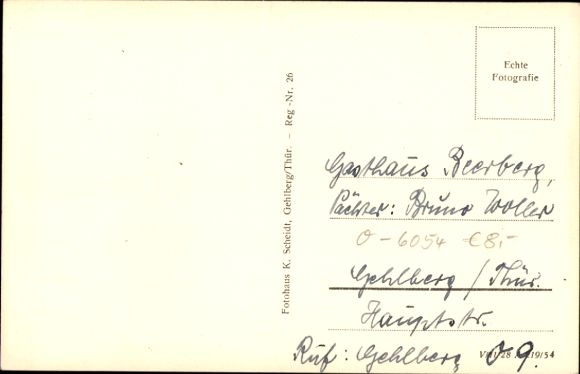 Echte
Fotografie
Fotohaus K. Scheidt, Gehlberg/Thür. – Reg-Nr. 26
Gasthaus Beerberg,
Pächter: Bruno Woller
0-6054 €8,-
Gehlberg / Thür.
Hauptstr.
Ruf: Gehlberg 09.
19/54